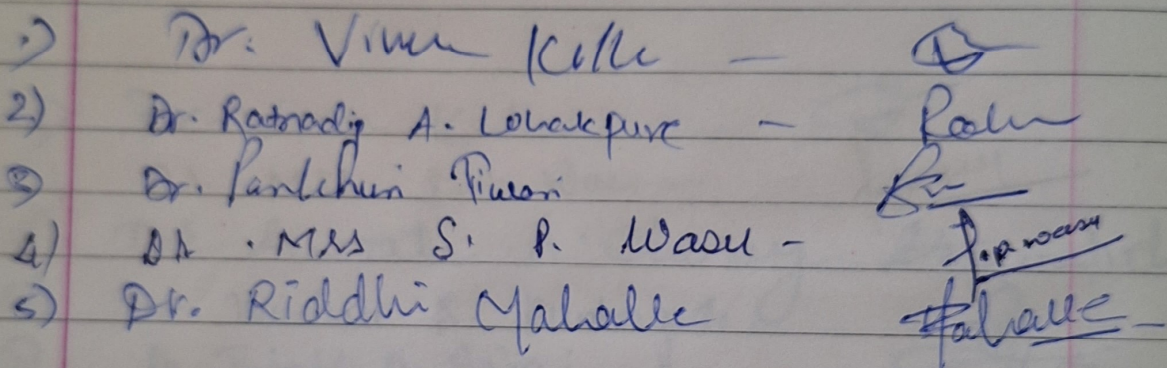 1) Dr. Vivek Kelle -
2) Dr. Ratnadip A. Lohakpure -
3) Dr. Pankhuri Tiwari
4) DR. MRS S. P. Wasu - S.P. Wasu
5) Dr. Riddhi Mahalle Mahalle